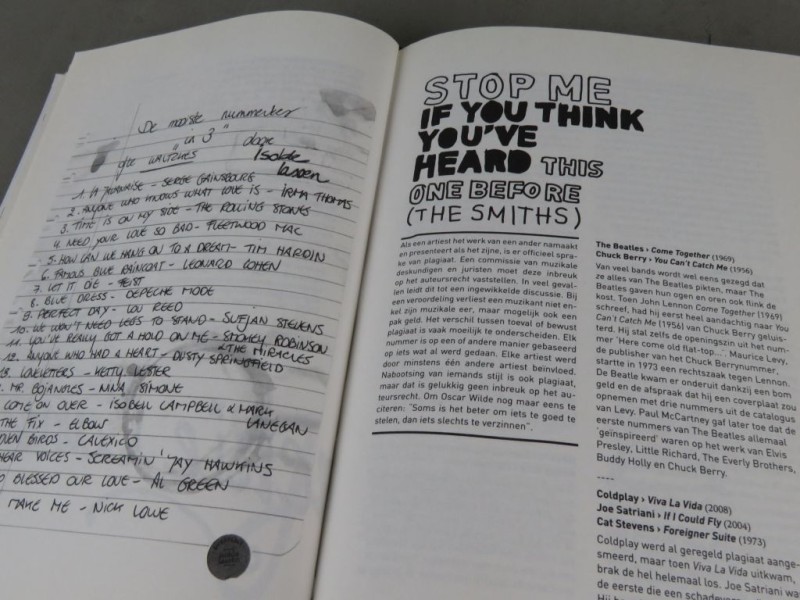 De mooiste nummerkes
"in 3" door
ofte WALTZKES Isolde
Lasoen
1. LA JAVANAISE - SERGE GAINSBOURG
2. ANYONE WHO KNOWS WHAT LOVE IS - IRMA THOMAS
3. TIME IS ON MY SIDE - THE ROLLING STONES
4. NEED YOUR LOVE SO BAD - FLEETWOOD MAC
5. HOW CAN WE HANG ON TO A DREAM - TIM HARDIN
6. FAMOUS BLUE RAINCOAT - LEONARD COHEN
7. LET IT DIE - FEIST
8. BLUE DRESS - DEPECHE MODE
9. PERFECT DAY - LOU REED
10. WE WON'T NEED LEGS TO STAND - SUFJAN STEVENS
11. YOU'VE REALLY GOT A HOLD ON ME - SMOKEY ROBINSON
& THE MIRACLES
12. ANYONE WHO HAD A HEART - DUSTY SPRINGFIELD
LOVELETTERS - KETTY LESTER
MR. BOJANGLES - NINA SIMONE
COME ON OVER - ISOBELL CAMPBELL & MARK
LANEGAN
THE FIX - ELBOW
BIRDS - CALEXICO
HEAR VOICES - SCREAMIN' JAY HAWKINS
BLESSED OUR LOVE - AL GREEN
MAKE ME - NICK LOWE
STOP ME
IF YOU THINK
YOU'VE
HEARD THIS
ONE BEFORE
(THE SMITHS)
Als een artiest het werk van een ander namaakt
en presenteert als het zijne, is er officieel spra-
ke van plagiaat. Een commissie van muzikale
deskundigen en juristen moet deze inbreuk
op het auteursrecht vaststellen. In veel geval-
len leidt dit tot een ingewikkelde discussie. Bij
een veroordeling verliest een muzikant niet en-
kel zijn muzikale eer, maar mogelijk ook een
pak geld. Het verschil tussen toeval of bewust
plagiaat is vaak moeilijk te onderscheiden. Elk
nummer is op een of andere manier gebaseerd
op iets wat al werd gedaan. Elke artiest werd
door minstens één andere artiest beïnvloed.
Nabootsing van iemands stijl is ook plagiaat,
maar dat is gelukkig geen inbreuk op het au-
teursrecht. Om Oscar Wilde nog maar eens te
citeren: "Soms is het beter om iets te goed te
stelen, dan iets slechts te verzinnen".
The Beatles › Come Together (1969)
Chuck Berry › You Can't Catch Me (1956)
Van veel bands wordt wel eens gezegd dat
ze alles van The Beatles pikten, maar The
Beatles gaven hun ogen en oren ook flink de
kost. Toen John Lennon Come Together (1969)
schreef, had hij eerst heel aandachtig naar You
Can't Catch Me (1956) van Chuck Berry geluis-
terd. Hij stal zelfs de openingszin uit het num-
mer 'Here come old flat-top...'. Maurice Levy,
de publisher van het Chuck Berrynummer,
startte in 1973 een rechtszaak tegen Lennon.
De Beatle kwam er onderuit dankzij een bom
geld en de afspraak dat hij een coverplaat zou
opnemen met drie nummers uit de catalogus
van Levy. Paul McCartney gaf later toe dat de
eerste nummers van The Beatles allemaal
'geïnspireerd' waren op het werk van Elvis
Presley, Little Richard, The Everly Brothers,
Buddy Holly en Chuck Berry.
----
Coldplay › Viva La Vida (2008)
Joe Satriani › If I Could Fly (2004)
Cat Stevens › Foreigner Suite (1973)
Coldplay werd al geregeld plagiaat aange-
smeerd, maar toen Viva La Vida uitkwam,
brak de hel helemaal los. Joe Satriani was
de eerste die een